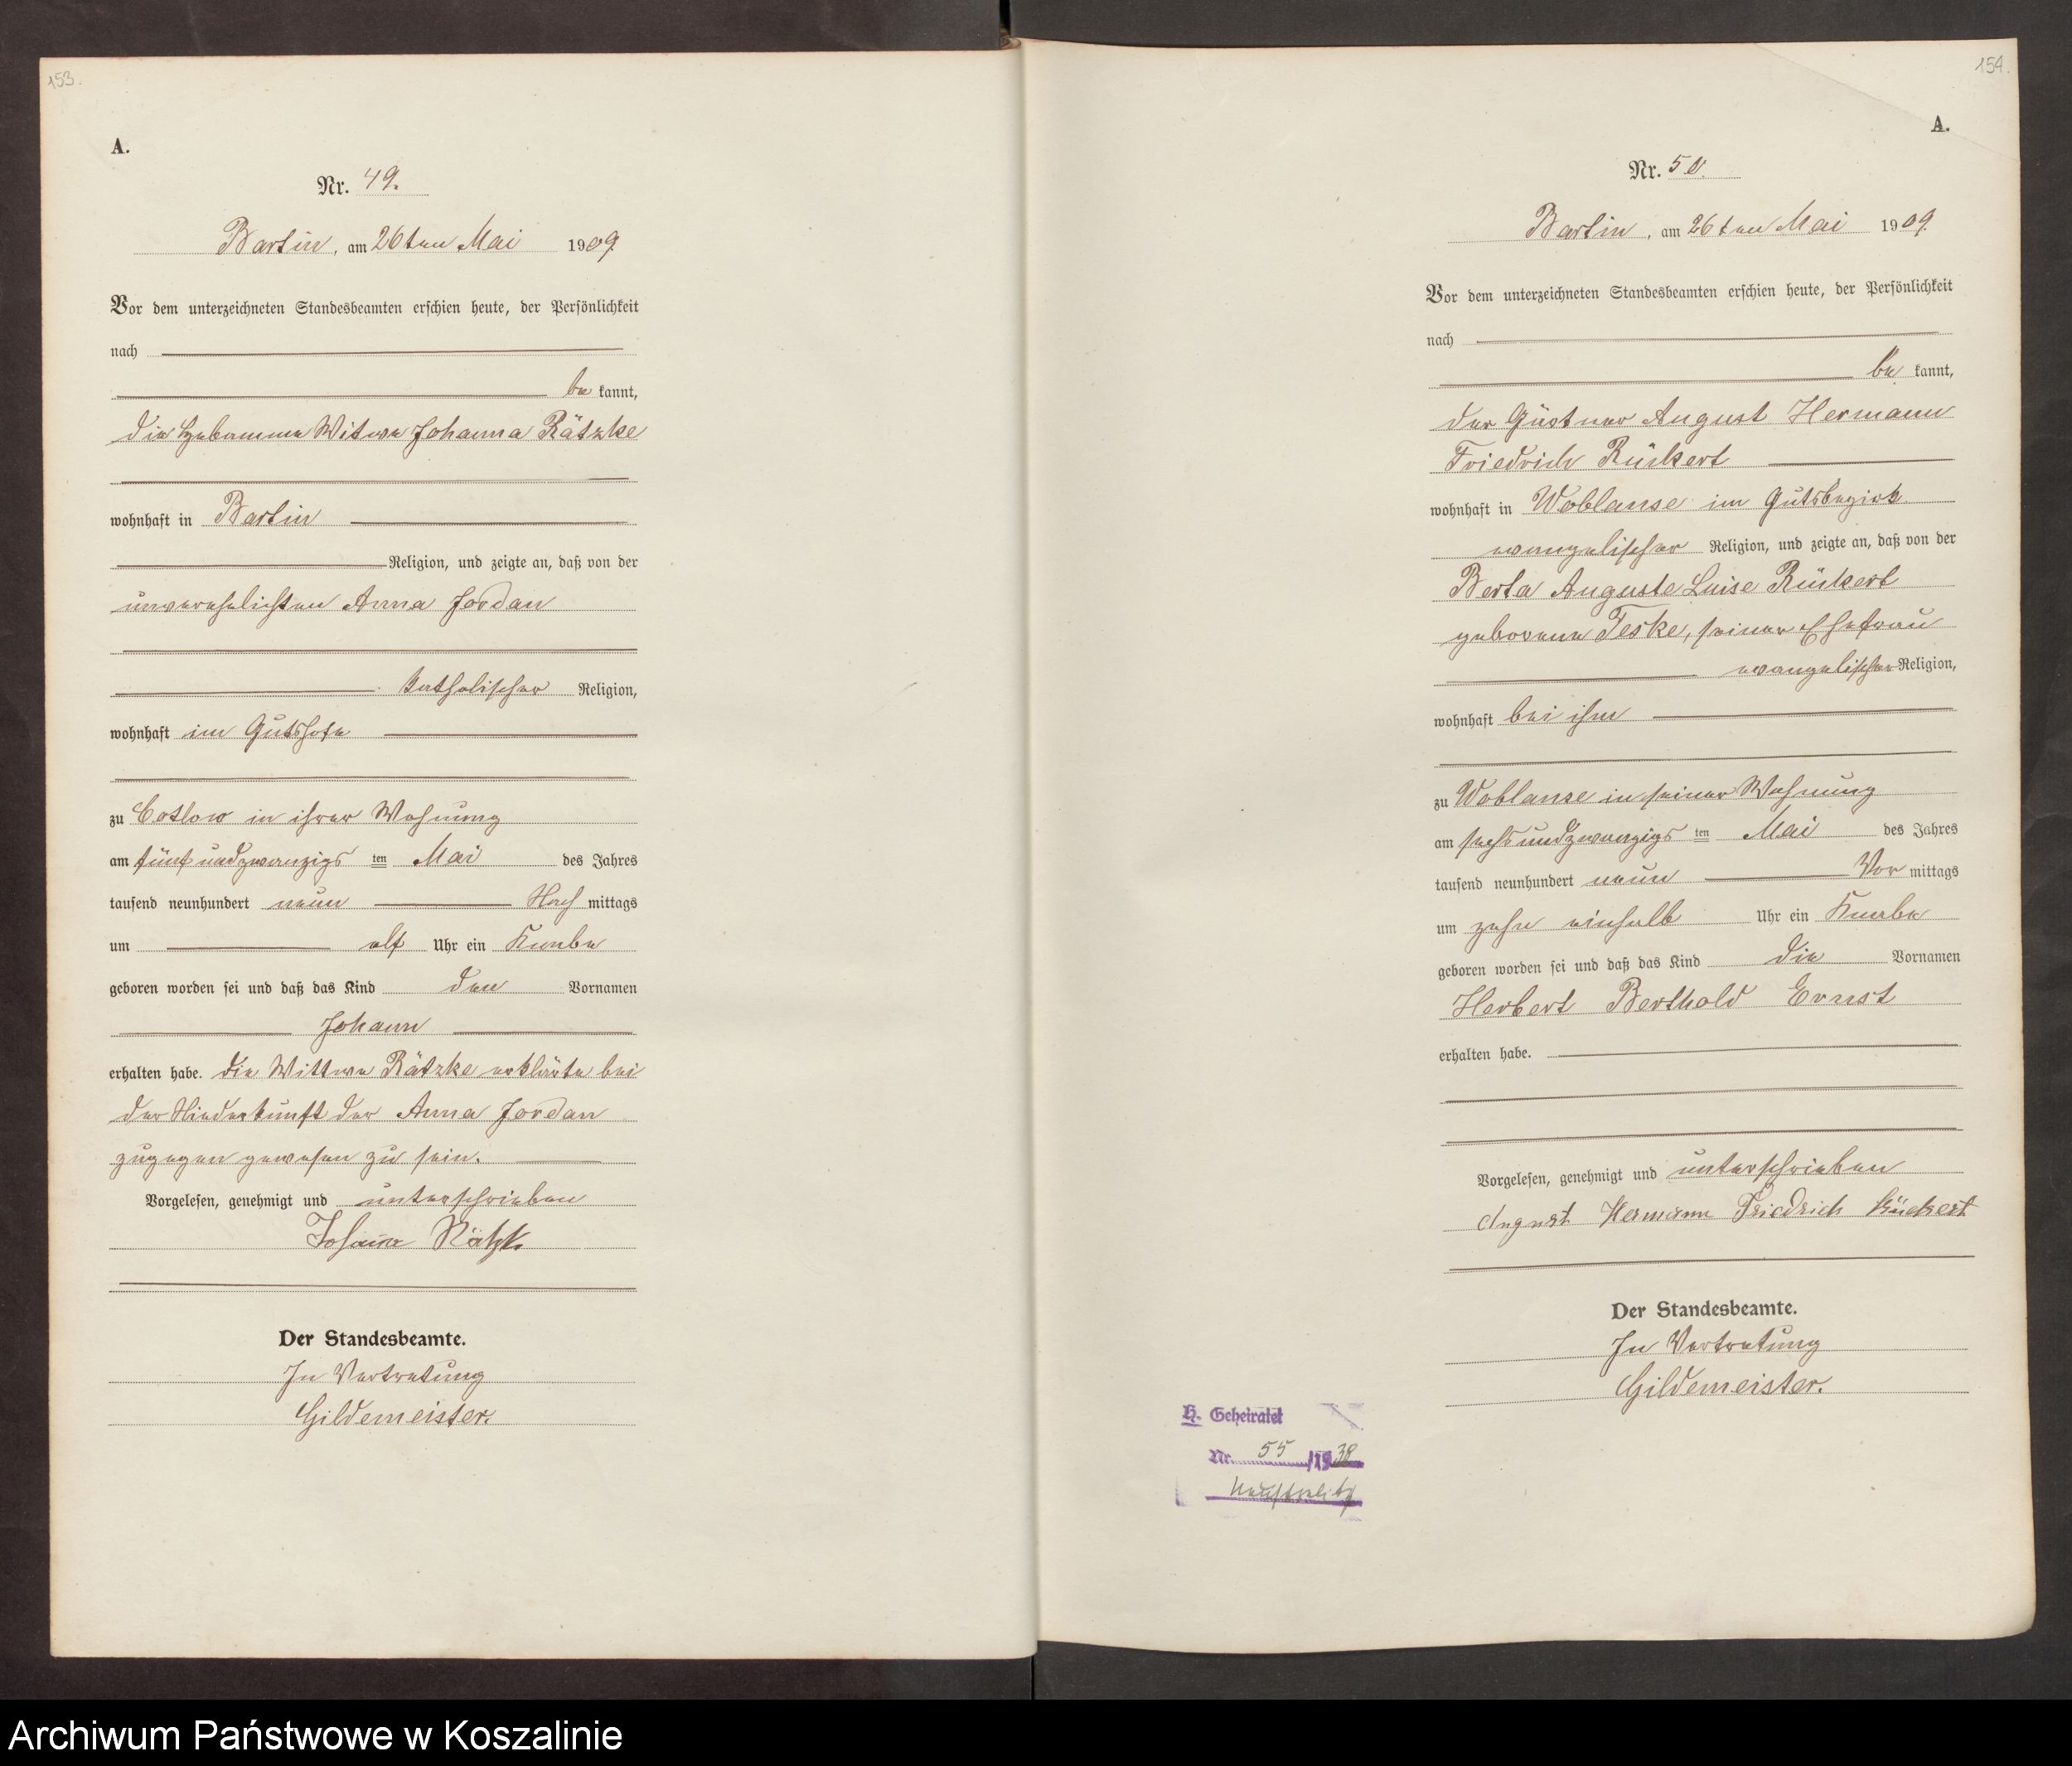 153.
A.
Nr. 49.
Bartin, am 26ten Mai 1909.
Vor dem unterzeichneten Standesbeamten erschien heute, der Persönlichkeit
nach
be kannt,
die Hebamme Witwe Johanna Rätzke
wohnhaft in Bartin
Religion, und zeigte an, daß von der
unverehelichten Anna Jordan
katholischer Religion,
wohnhaft im Gutshofe
zu Cotlow in ihrer Wohnung
am fünfundzwanzigs ten Mai des Jahres
tausend neunhundert neun Nach mittags
um elf Uhr ein Knabe
geboren worden sei und daß das Kind den Vornamen
Johann
erhalten habe. Die Wittwe Rätzke erklärte bei
der Niederkunft der Anna Jordan
zugegen gewesen zu sein.
Vorgelesen, genehmigt und unterschrieben
Johanna Rätzke
Der Standesbeamte.
In Vertretung
Gildemeister.
154.
A.
Nr. 50.
Bartin, am 26ten Mai 1909.
Vor dem unterzeichneten Standesbeamten erschien heute, der Persönlichkeit
nach
be kannt,
der Gärtner August Hermann
Friedrich Rückert
wohnhaft in Woblanse im Gutsbezirk
evangelischer Religion, und zeigte an, daß von der
Berta Auguste Luise Rückert
geborene Teske, seiner Ehefrau
evangelischer Religion,
wohnhaft bei ihm
zu Woblanse in seiner Wohnung
am sechsundzwanzigs ten Mai des Jahres
tausend neunhundert neun Vor mittags
um zehn einhalb Uhr ein Knabe
geboren worden sei und daß das Kind die Vornamen
Herbert Berthold Ernst
erhalten habe.
Vorgelesen, genehmigt und unterschrieben
August Hermann Friedrich Rückert
Der Standesbeamte.
In Vertretung
Gildemeister.
H. Geheiratet
Nr. 55 /1938
Neustrelitz
Archiwum Państwowe w Koszalinie